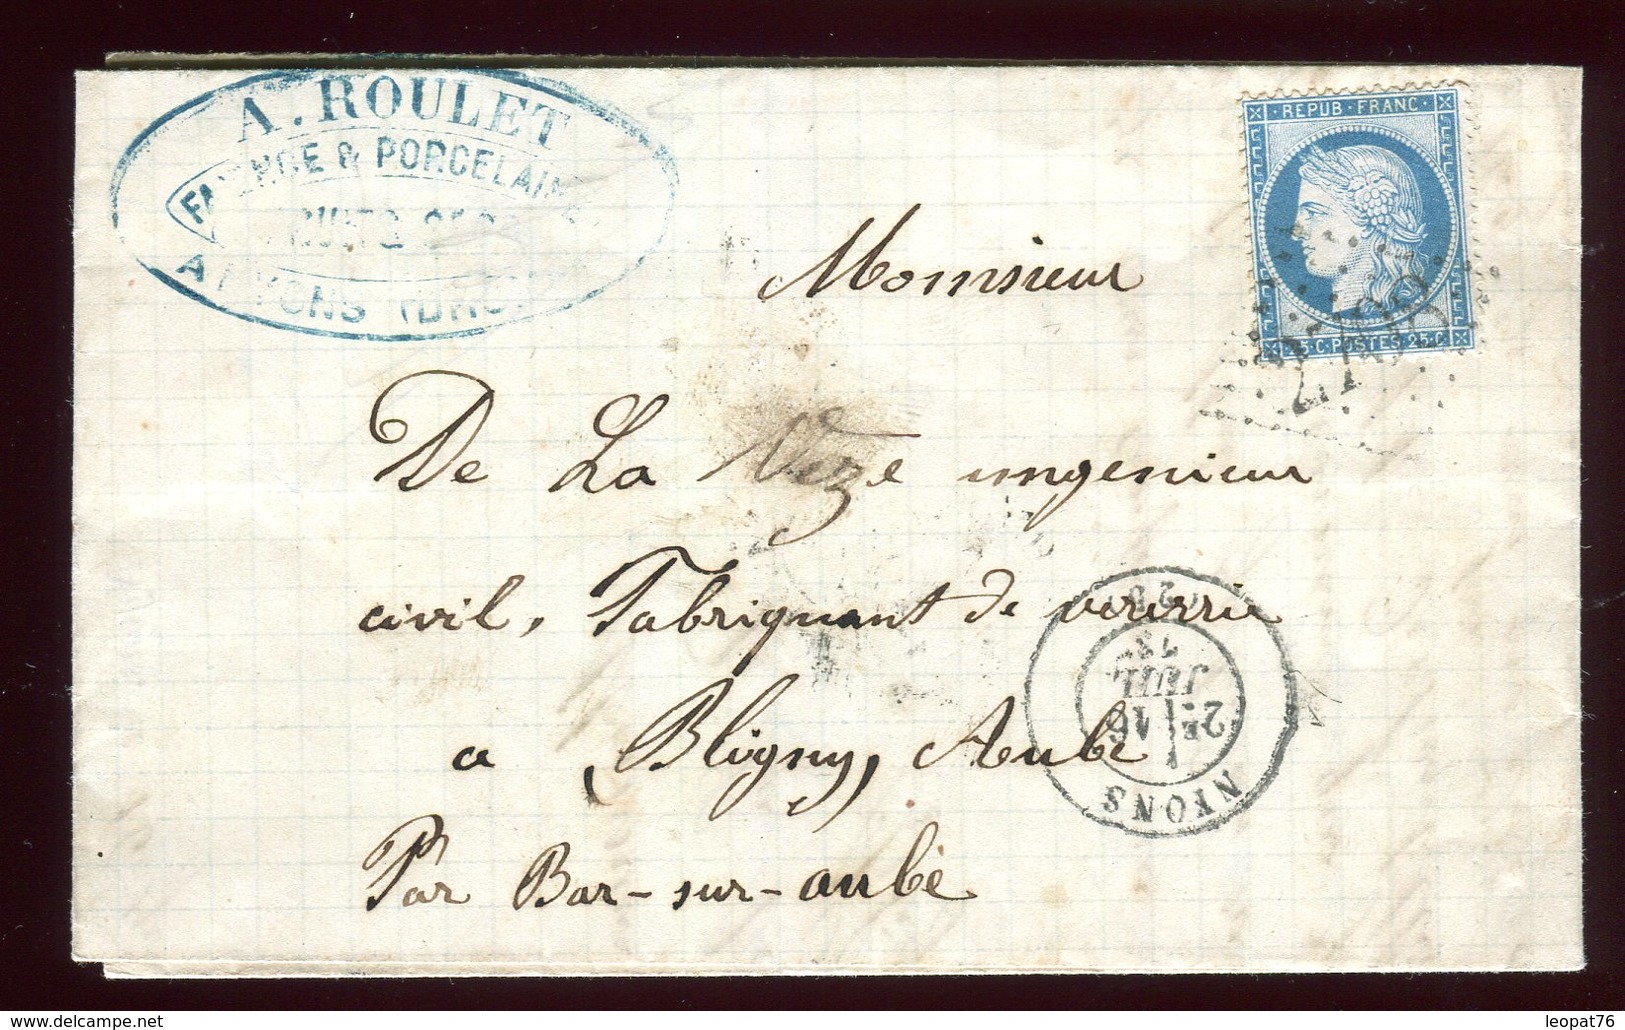 A. ROULET
FAYENCE & PORCELAINE
A NYONS (DRÔME
REPUB · FRANC ·
25 · C · POSTES · 25 · C
Monsieur
De La Vèze ingenieur
civil, Fabriquant de verrerie
a Bligny, Aube
Par Bar-sur-aube
2E 16
JUIL
73
NYONS
leopat76